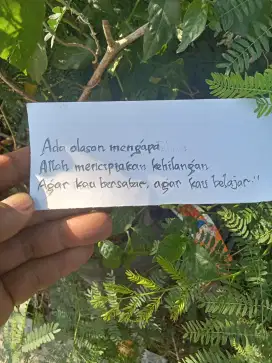 Ada alasan mengapa.....
Allah menciptakan kehilangan
Agar kau bersabar, agar kau belajar..!!